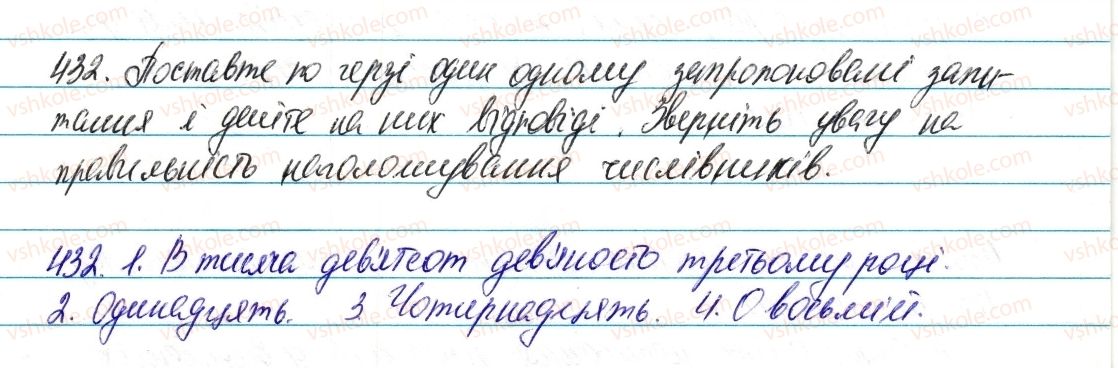 432. Поставте по черзі один одному запропоновані запи-
тання і дайте на них відповіді. Зверніть увагу на
правильність наголошування числівників.
432. 1. В тисяча дев'ятсот дев'яносто третьому році.
2. Одинадцять. 3. Чотирнадцять. 4. О восьмій.